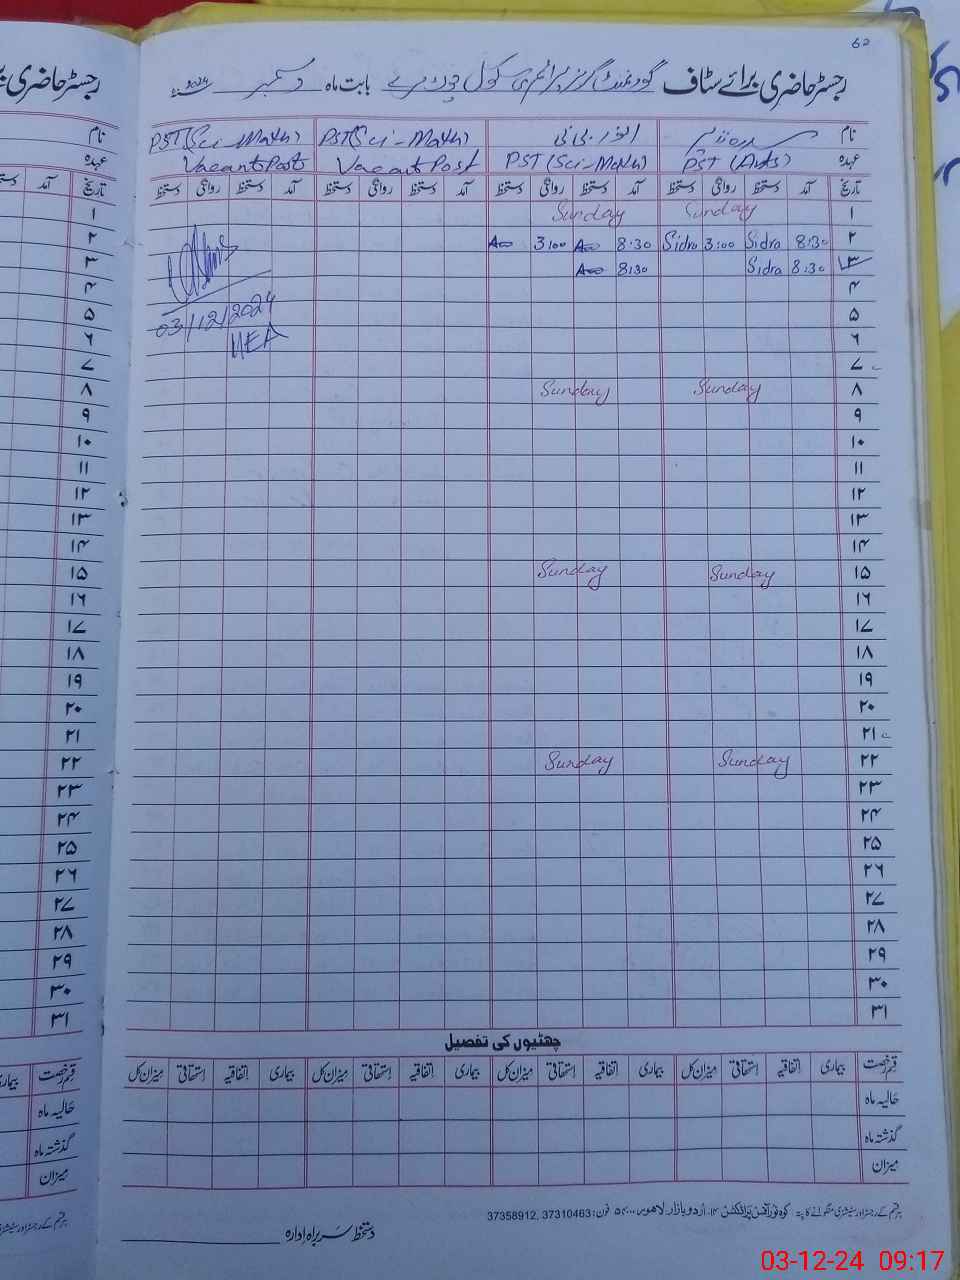 62
رجسٹر حاضری برائے سٹاف گورنمنٹ گرلز پرائمری سکول بابت ماہ دسمبر 2024
نام سدرہ PST (Sci-Math) PST (Sci-Math)
عہدہ PST (Arts) PST (Sci-Math) Vacant Post Vacant Post
تاریخ آمد دستخط روانگی دستخط آمد دستخط روانگی دستخط آمد دستخط روانگی دستخط آمد دستخط روانگی دستخط
۱ Sunday Sunday
۲ 8:30 Sidra 3:00 Sidra 8:30 3:00
۳ 8:30 Sidra 8:30
۴
۵ 03/12/2024
۶ MEA
۷
۸ Sunday Sunday
۹
۱۰
۱۱
۱۲
۱۳
۱۴
۱۵ Sunday Sunday
۱۶
۱۷
۱۸
۱۹
۲۰
۲۱
۲۲ Sunday Sunday
۲۳
۲۴
۲۵
۲۶
۲۷
۲۸
۲۹
۳۰
۳۱
چھٹیوں کی تفصیل
قسم رخصت بیماری اتفاقیہ استحقاقی میزان کل بیماری اتفاقیہ استحقاقی میزان کل بیماری اتفاقیہ استحقاقی میزان کل بیماری اتفاقیہ استحقاقی میزان کل
حالیہ ماہ
گذشتہ ماہ
میزان
ہر قسم کے رجسٹر اور سٹیشنری منگوانے کا پتہ: اردو بازار لاہور فون: 37310463, 37358912
دستخط سربراہ ادارہ
رجسٹر حاضری
نام
عہدہ
تاریخ آمد
۱
۲
۳
۴
۵
۶
۷
۸
۹
۱۰
۱۱
۱۲
۱۳
۱۴
۱۵
۱۶
۱۷
۱۸
۱۹
۲۰
۲۱
۲۲
۲۳
۲۴
۲۵
۲۶
۲۷
۲۸
۲۹
۳۰
۳۱
قسم رخصت بیماری
حالیہ ماہ
گذشتہ ماہ
میزان
03-12-24 09:17